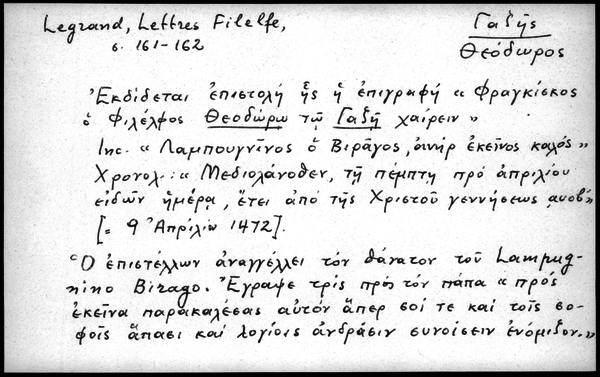 Legrand, Lettres Filelfe,
σ. 161-162
Γαζῆς
Θεόδωρος
Ἐκδίδεται ἐπιστολή ἧς ἡ ἐπιγραφή « Φραγκίσκος
ὁ Φιλέλφος Θεοδώρῳ τῷ Γαζῇ χαίρειν »
Inc. « Λαμπουγνῖνος ὁ Βιρᾶγος, ἀνήρ ἐκεῖνος καλός »
Χρονολ.: « Μεδιολάνοθεν, τῇ πέμπτῃ πρό ἀπριλίου
εἰδῶν ἡμέρᾳ, ἔτει ἀπό τῆς Χριστοῦ γεννήσεως αυοβ´»
[= 9 Ἀπρίλιο 1472].
Ὁ ἐπιστέλλων ἀναγγέλλει τόν θάνατον τοῦ Lampug-
nino Birago. Ἔγραψε τρίς πρός τόν πάπα « πρός
ἐκεῖνα παρακαλέσας αὐτόν ἅπερ σοί τε καί τοῖς σο-
φοῖς ἅπασι καί λογίοις ἀνδράσιν συνοίσειν ἐνόμιζον.»